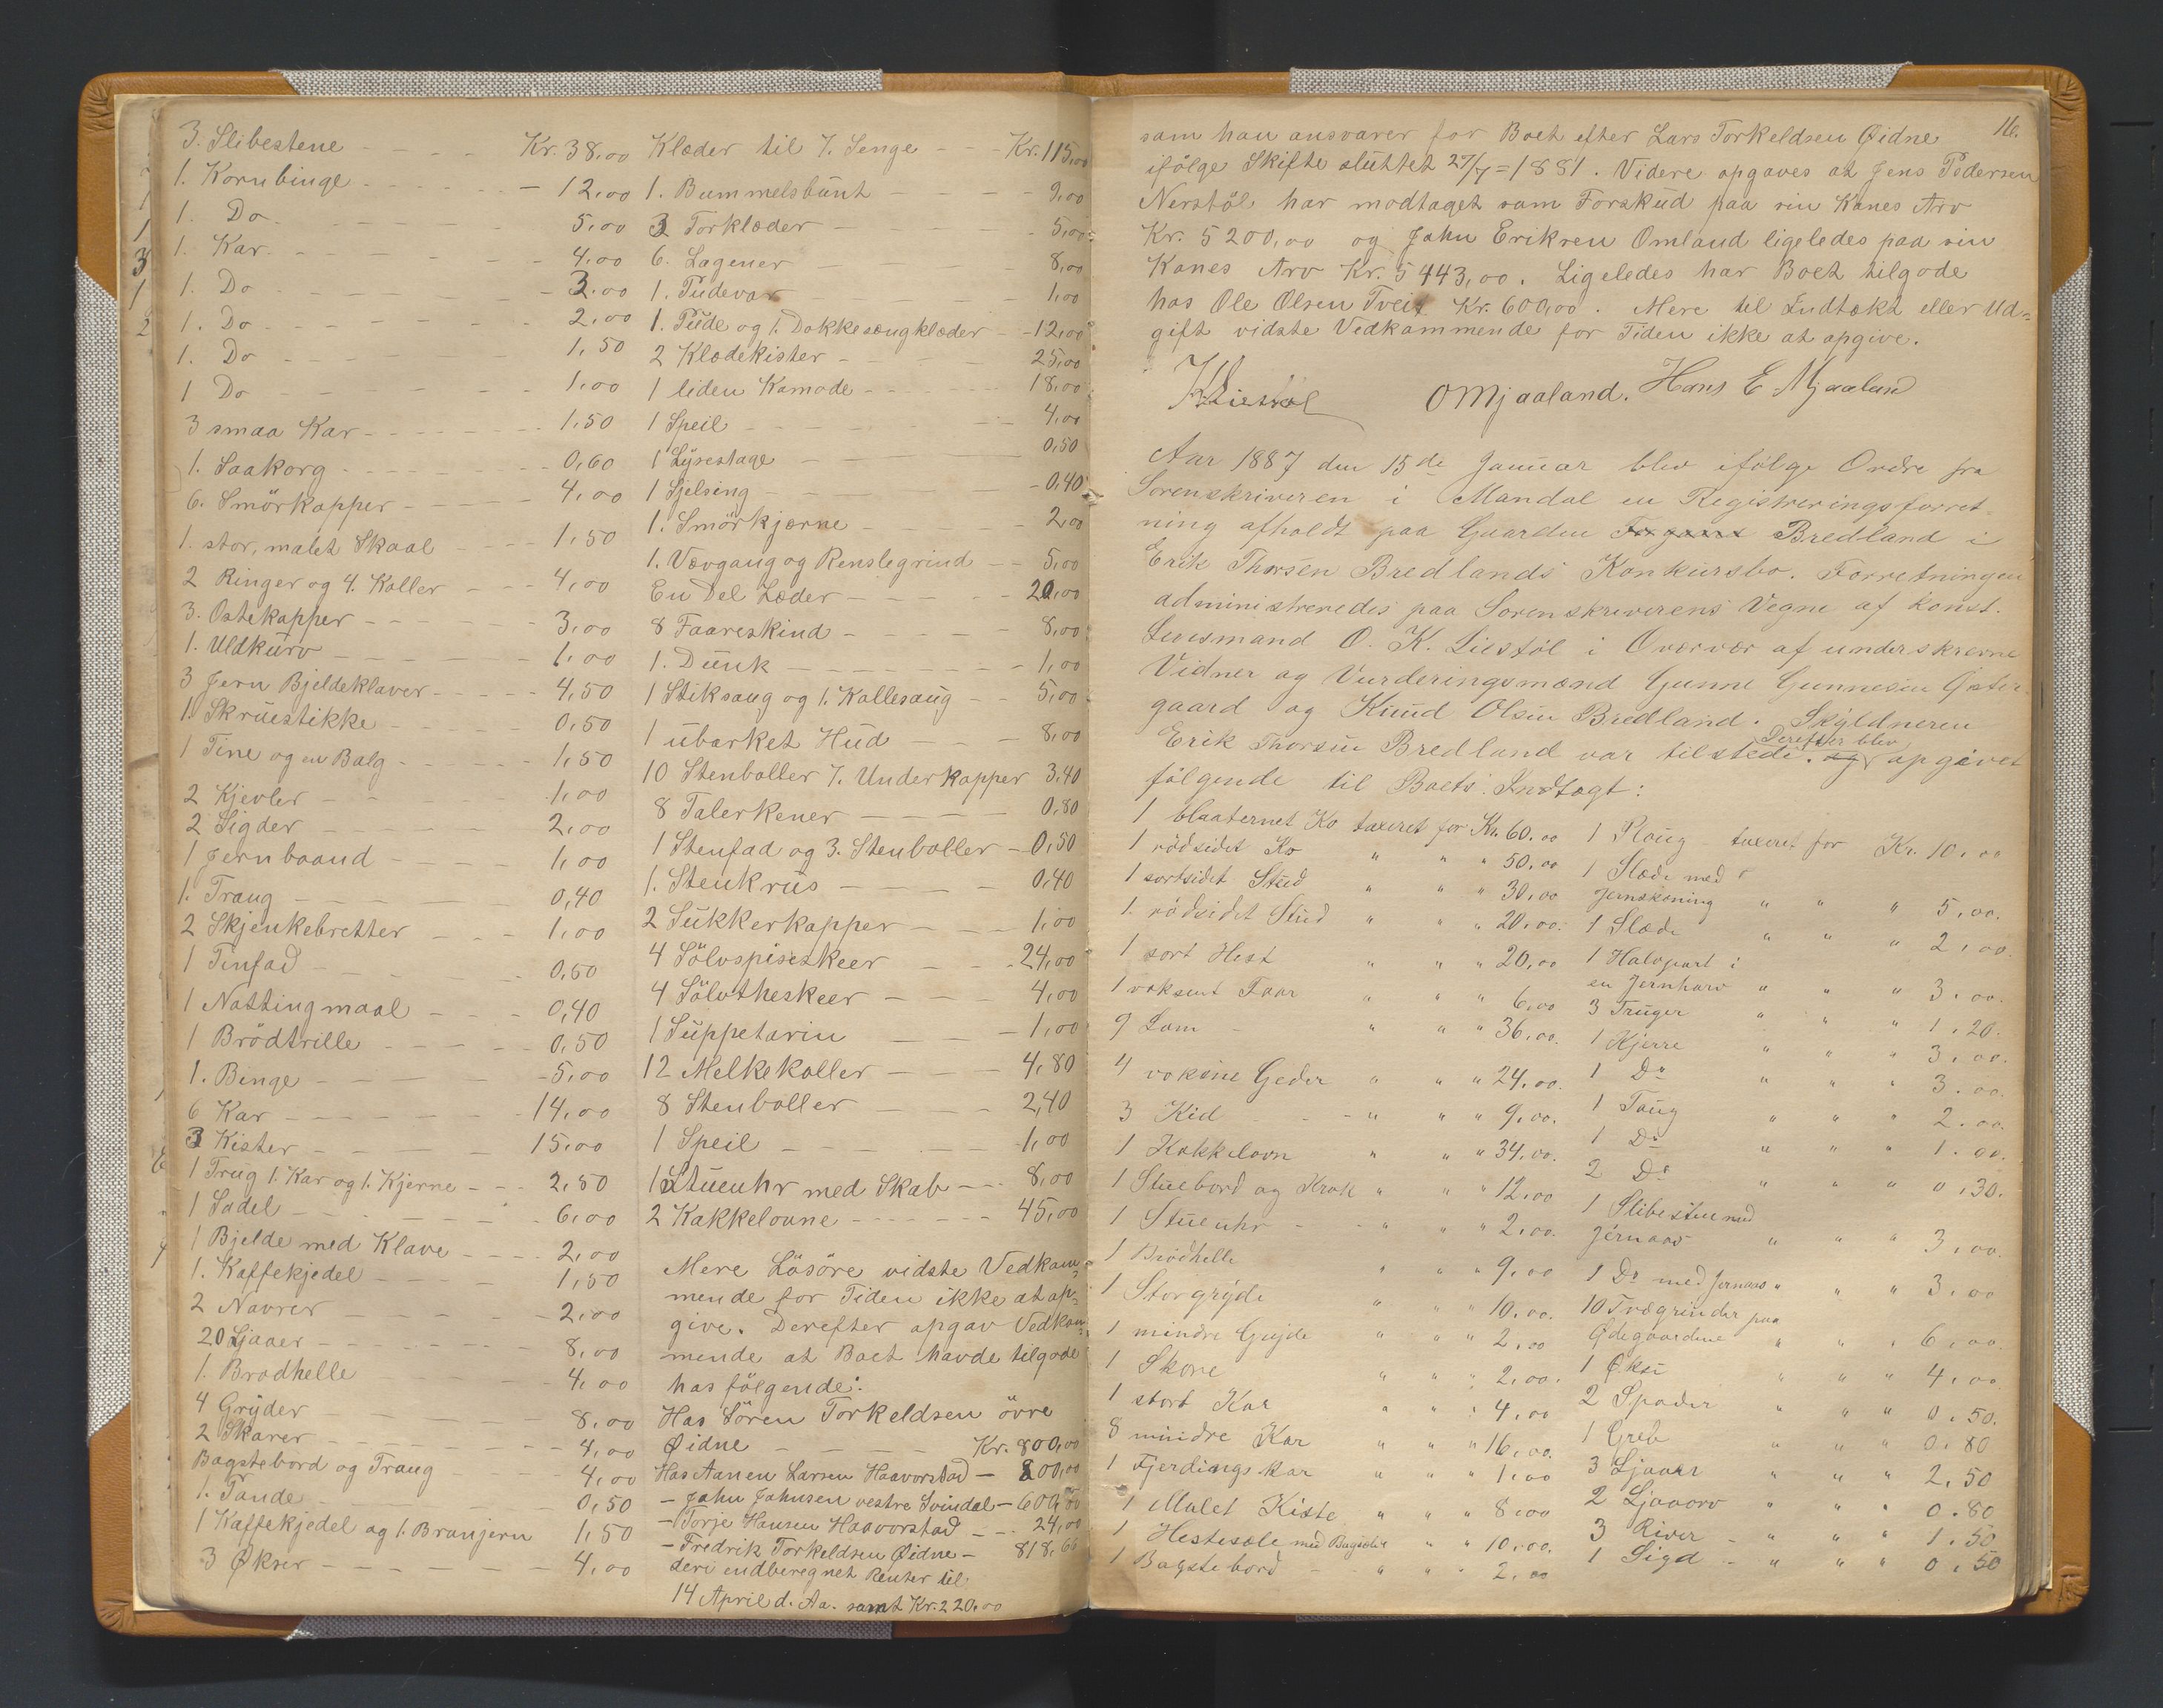 3. Slibestene - - - - Kr. 38,00
1. Kornbinge - - - - 12,00
1. Do - - - - 5,00
1. Kar - - - - 4,00
1. Do - - - - 3,00
1. Do - - - - 2,00
1. Do - - - - 1,50
1 Do - - - - 1,00
3 smaa Kar - - - - 1,50
1. Saakorg - - - - 0,60
6. Smörkopper - - - - 4,00
1. stor, malet Skaal - - - - 1,50
2 Ringer og 4. Koller - - 4,00
3. Ostekopper - - - - 3,00
1. Uldkurv - - - - 1,00
3 Jern Bjeldeklaver - - - - 4,50
1. Skruestikke - - - - 0,50
1 Tine og en Balg - - - - 1,50
2 Kjevler - - - - 1,00
2 Sigder - - - - 2,00
1 Jernbaand - - - - 1,00
1. Traug - - - - 0,40
2 Skjenkebretter - - - 1,00
1 Tinfad - - - - 0,60
1 Nottingmaal - - - 0,40
1 Brödtrille - - - - 0,50
1. Binge - - - - 5,00
6 Kar - - - - 14,00
3 Kister - - - - 15,00
1 Trug 1. Kar og 1. Kjerne - - - 2,50
1 Sadel - - - - 6,00
1 Bjelde med Klave - - - - 2,00
1. Kaffekjedel - - - - 1,50
2 Navrer - - - - 2,00
20 Ljaaer - - - - 8,00
1. Brødhelle - - - - 4,00
4 Gryder - - - - 8,00
2 Skorer - - - - 4,00
Bagstebord og Traug - - - 4,00
1. Tønde - - - - 0,50
1 Kaffekjedel og 1. Branjern 1,50
3 Økser - - - - 4,00
Klæder til 7. Senge - - - Kr. 115,00
1. Bummelsbunt - - - - 9,00
3 Torklæder - - - - 5,00
6. Lagener - - - - 8,00
1. Pudevar - - - - 1,00
1. Pude og 1. Dokkesengklæder - - 12,00
2 Klædekister - - - - 25,00
1 liden Komode - - - - 18,00
1 Speil - - - - 4,00
1 Lysestage - - - - 0,50
1 Sjelsing - - - - 0,40
1. Smörkjærne - - - - 2,00
1. Vævgang og Renslegrind - - 5,00
En Del Læder - - - - 20,00
8 Faareskind - - - - 8,00
1. Dunk - - - - 1,00
1 Stiksaug og 1. Kollesaug - - 5,00
1 ubarket Hud - - 8,00
10 Stenboller 7. Underkopper 3,40
8 Talerkener - - - - 0,80
1 Stenfad og 3. Stenboller - 0,50
1. Stenkrus - - - - 0,40
2 Sukkerkopper - - - - 1,00
4 Sölvspiseskeer - - - 24,00
4 Sölvtheskeer - - 4,00
1 Suppeterin - - 1,00
12 Melkekoller - - - 4,80
8 Stenboller - - - 2,40
1 Speil - - - - 1,00
1 Stueuhr med Skab - - - 8,00
2 Kakkelovne - - - - 45,00
Mere Lösöre vidste Vedkom-
mende for Tiden ikke at op-
give. Derefter opgav Vedkom-
mende at Boet havde tilgode
hos fölgende:
Hos Sören Torkeldsen övre
Øidne - - - - Kr. 800,00
Hos Aanen Larsen Haavorstad - 800,00
- John Johnsen vestre Svindal - 600,00
- Torje Hansen Haavorstad - - - 24,00
- Fredrik Torkeldsen Øidne - 818,66
deri endberegnet Renter til
14 April d. Aa. samt Kr. 220,00
16.
som han ansvarer for Boet efter Lars Torkeldsen Øidne
ifölge Skifte sluttet 27/7 = 1881. Videre opgaves at Jens Pedersen
Nerstöl har modtaget som Forskud paa sin Kones Arv
Kr. 5200,00 og John Eriksen Omland ligeledes paa sin
Kones Arv Kr. 5443,00. Ligeledes har Boet tilgode
hos Ole Olsen Tveit Kr. 600,00. Mere til Indtækt eller Ud-
gift vidste Vedkommende for Tiden ikke at opgive.
OMjaaland. Hans E Mjaaland
Aar 1887 den 15de Januar blev ifölge Ordre fra
Sorenskriveren i Mandal en Registreringsforret
ning afholdt paa Gaarden Bredland i
Erik Thorsen Bredlands Konkursbo. Forretningen
administreredes paa Sorenskriverens Vegne af Konst.
Lensmand O. K. Liestöl i Overvær af underskrevne
Vidner og Vurderingsmænd Gunne Gunnesen Öster
gaard og Knud Olsen Bredland. Skyldneren
Erik Thorsen Bredland var tilstede. og Derefter blev opgivet
fölgende til Boets Indtægt:
1 blaaternet Ko taxeret for Kr. 60,00
1 rödsidet Ko " " " 50,00
1 sortsidet Stud " " " 30,00
1 rödsidet Stud " " " 20,00
1 sort Hest " " " 20,00
1 voksent Faar " " " 6,00
9 Lam - " " " 36,00.
4 voksne Geder " " " 24,00.
3 Kid - - " " " 9,00.
1 Kakkelovn " " " 34,00.
1 Stuebord og Krak " " " 12,00
1 Stueuhr - - " " " 2,00.
1 Brödhelle " " " 9,00
1 Storgryde " " " 10,00.
1 mindre Gryde " " " 2,00
1 Skore " " " 2,00.
1 stort Kar " " " 4,00
8 mindre Kar " " " 16,00.
1 Fjerdings Kar " " " 1,00
1 Malet Kiste " " " 8,00
1 Hestesæle med Bagsæle " " 10,00.
1 Bagstebord - - " " " 2,00
1 Ploug taxeret for Kr. 10,00
1 Slæde med
Jernskoning " " " 5,00.
1 Slæde " " " 2,00.
1 Halvpart i
en Jernharv " " " 3,00.
3 Truger " " " 1,20.
1 Kjerre " " " 3,00.
1 Do " " " 3,00.
1 Taug " " " 2,00.
1 Do " " " 1,00.
2 Do " " " 0,30.
1 Slibesten med
Jernaas " " " 3,00.
1 Do med Jernaas " " " 3,00
10 Trægrinder paa
Ødegaardene " " " 6,00.
1 Øks " " " 4,00.
2 Spader " " " 0,50.
1 Greb " " " 0,80
3 Ljaaer " " " 2,50
2 Ljaaorv " " " 0,80
3 River - " " " 1,50
1 Sigd - " " " 0,50